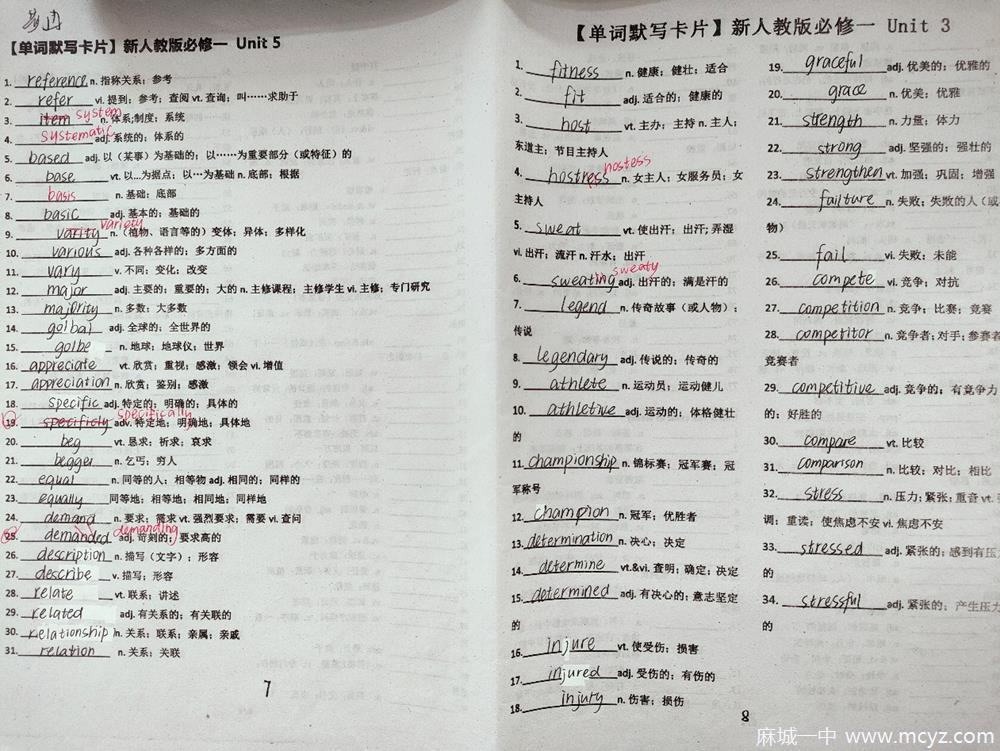 【单词默写卡片】新人教版必修一 Unit 5
1. reference n. 指称关系；参考
2. refer vi. 提到；参考；查阅 vt. 查询；叫……求助于
3. item system n. 体系;制度；系统
4. systematic adj.系统的；体系的
5. based adj. 以（某事）为基础的；以……为重要部分（或特征）的
6. base vt. 以...为据点；以…为基础 n. 底部；根据
7. basis n. 基础；底部
8. basic adj. 基本的；基础的
9. varity variety n.（植物、语言等的）变体；异体；多样化
10. various adj. 各种各样的；多方面的
11. vary v. 不同；变化；改变
12. major adj. 主要的；重要的；大的 n. 主修课程；主修学生 vi. 主修；专门研究
13. majority n. 多数；大多数
14. golbal adj. 全球的；全世界的
15. golbe n. 地球；地球仪；世界
16. appreciate vt. 欣赏；重视；感激；领会 vi. 增值
17. appreciation n. 欣赏；鉴别；感激
18. specific adj. 特定的；明确的；具体的
19. specificly specifically adv. 特定地；明确地；具体地
20. beg vt. 恳求；祈求；哀求
21. begger n. 乞丐；穷人
22. equal n. 同等的人；相等物 adj. 相同的；同样的
23. equally 同等地；相等地；相同地；同样地
24. demand n. 要求；需求 vt. 强烈要求；需要 vi. 查问
25. demanded demanding adj. 苛刻的；要求高的
26. description n. 描写（文字）；形容
27. describe v. 描写；形容
28. relate vt. 联系；讲述
29. related adj. 有关系的；有关联的
30. relationship n. 关系；联系；亲属；亲戚
31. relation n. 关系；关联
7
【单词默写卡片】新人教版必修一 Unit 3
1. fitness n. 健康；健壮；适合
2. fit adj. 适合的；健康的
3. host vt. 主办；主持 n. 主人；
东道主；节目主持人
4. hostress hostess n. 女主人；女服务员；女
主持人
5. sweat vt. 使出汗；出汗;弄湿
vi. 出汗；流汗 n. 汗水；出汗
6. sweating sweaty adj. 出汗的；满是汗的
7. legend n. 传奇故事（或人物）；
传说
8. legendary adj. 传说的；传奇的
9. athlete n. 运动员；运动健儿
10. athletive adj. 运动的；体格健壮
的
11. championship n. 锦标赛；冠军赛；冠
军称号
12. champion n. 冠军；优胜者
13. determination n. 决心；决定
14. determine vt.&vi. 查明；确定；决定
15. determined adj. 有决心的；意志坚定
的
16. injure vt. 使受伤；损害
17. injured adj. 受伤的；有伤的
18. injury n. 伤害；损伤
19. graceful adj. 优美的；优雅的
20. grace n. 优美；优雅
21. strength n. 力量；体力
22. strong adj. 坚强的；强壮的
23. strengthen vt. 加强；巩固；增强
24. failture n. 失败；失败的人（或
物）
25. fail vi. 失败；未能
26. compete vi. 竞争；对抗
27. competition n. 竞争；比赛；竞赛
28. competitor n. 竞争者；对手；参赛者
竞赛者
29. competitive adj. 竞争的；有竞争力
的；好胜的
30. compare vt. 比较
31. comparison n. 比较；对比；相比
32. stress n. 压力；紧张；重音 vt.
调；重读；使焦虑不安 vi. 焦虑不安
33. stressed adj. 紧张的；感到有压
的
34. stressful adj. 紧张的；产生压力
的
8
麻城一中 www.mcyz.com